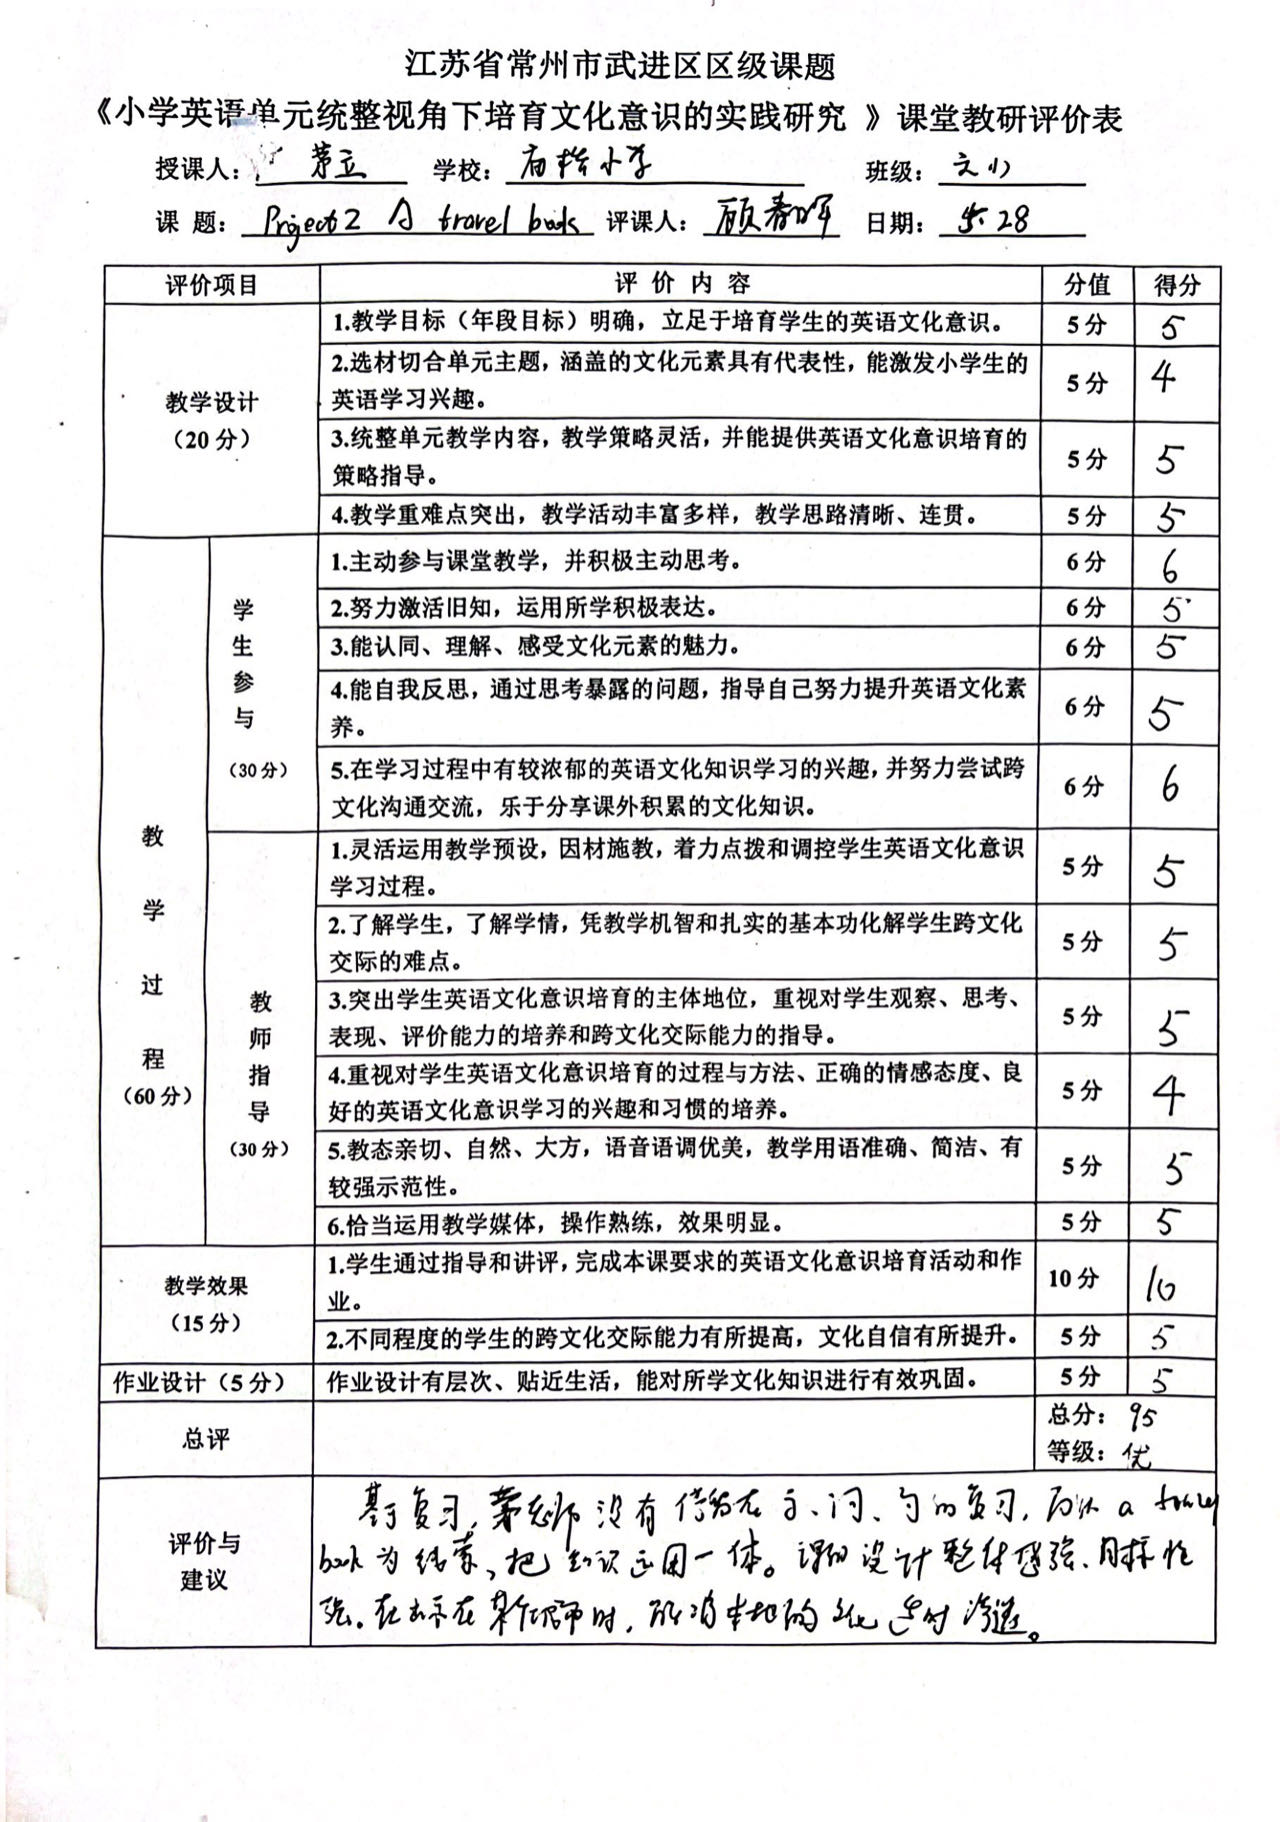 江苏省常州市武进区区级课题
《小学英语单元统整视角下培育文化意识的实践研究 》课堂教研评价表
授课人： 茅立 学校： 小学 班级：
课 题： Project2 A travel book 评课人： 顾春晖 日期： 5.28
评价项目 评 价 内 容 分值 得分
教学设计
（20 分）
1.教学目标（年段目标）明确，立足于培育学生的英语文化意识。 5 分 5
2.选材切合单元主题，涵盖的文化元素具有代表性，能激发小学生的
英语学习兴趣。 5 分 4
3.统整单元教学内容，教学策略灵活，并能提供英语文化意识培育的
策略指导。 5 分 5
4.教学重难点突出，教学活动丰富多样，教学思路清晰、连贯。 5 分 5
教
学
过
程
（60 分）
学
生
参
与
（30 分）
1.主动参与课堂教学，并积极主动思考。 6 分 6
2.努力激活旧知，运用所学积极表达。 6 分 5
3.能认同、理解、感受文化元素的魅力。 6 分 5
4.能自我反思，通过思考暴露的问题，指导自己努力提升英语文化素
养。 6 分 5
5.在学习过程中有较浓郁的英语文化知识学习的兴趣，并努力尝试跨
文化沟通交流，乐于分享课外积累的文化知识。 6 分 6
教
师
指
导
（30 分）
1.灵活运用教学预设，因材施教，着力点拨和调控学生英语文化意识
学习过程。 5 分 5
2.了解学生，了解学情，凭教学机智和扎实的基本功化解学生跨文化
交际的难点。 5 分 5
3.突出学生英语文化意识培育的主体地位，重视对学生观察、思考、
表现、评价能力的培养和跨文化交际能力的指导。 5 分 5
4.重视对学生英语文化意识培育的过程与方法、正确的情感态度、良
好的英语文化意识学习的兴趣和习惯的培养。 5 分 4
5.教态亲切、自然、大方，语音语调优美，教学用语准确、简洁、有
较强示范性。 5 分 5
6.恰当运用教学媒体，操作熟练，效果明显。 5 分 5
教学效果
（15 分）
1.学生通过指导和讲评，完成本课要求的英语文化意识培育活动和作
业。 10 分 10
2.不同程度的学生的跨文化交际能力有所提高，文化自信有所提升。 5 分 5
作业设计（5 分） 作业设计有层次、贴近生活，能对所学文化知识进行有效巩固。 5 分 5
总评
总分： 95
等级： 优
评价与
建议
基于复习，茅老师没有停留在字、词、句的复习，而以 a travel
book 为线索，把知识运用一体。课的设计整体感强、目标性
强。在 时，能将本地的文化适时渗透。